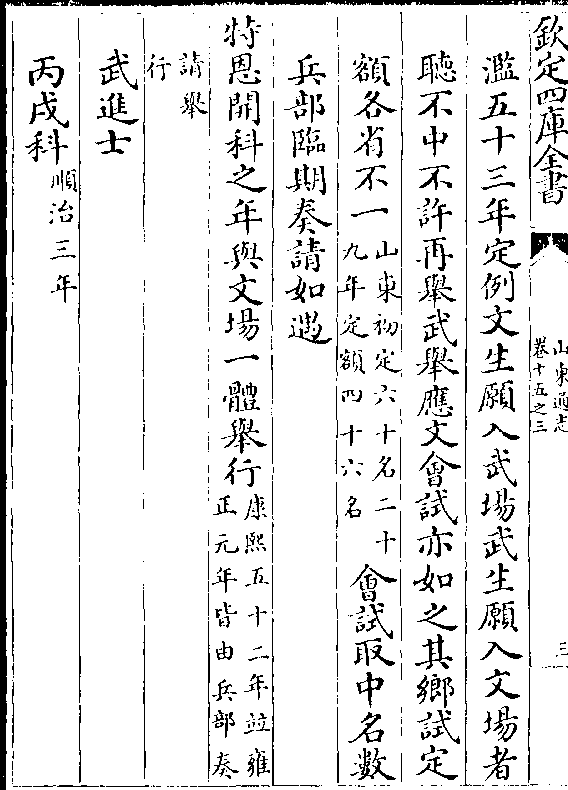 欽定四庫全書
山東通志
卷十五之三
三
濫五十三年定例文生願入武場武生願入文場者
聽不中不許再舉武舉應文會試亦如之其鄉試定
額各省不一山東初定六十名二十九年定額四十六名會試取中名數
兵部臨期奏請如遇
特恩開科之年與文場一體舉行康熙五十二年竝雍正元年皆由兵部奏
請舉行
武進士
丙戌科順治三年